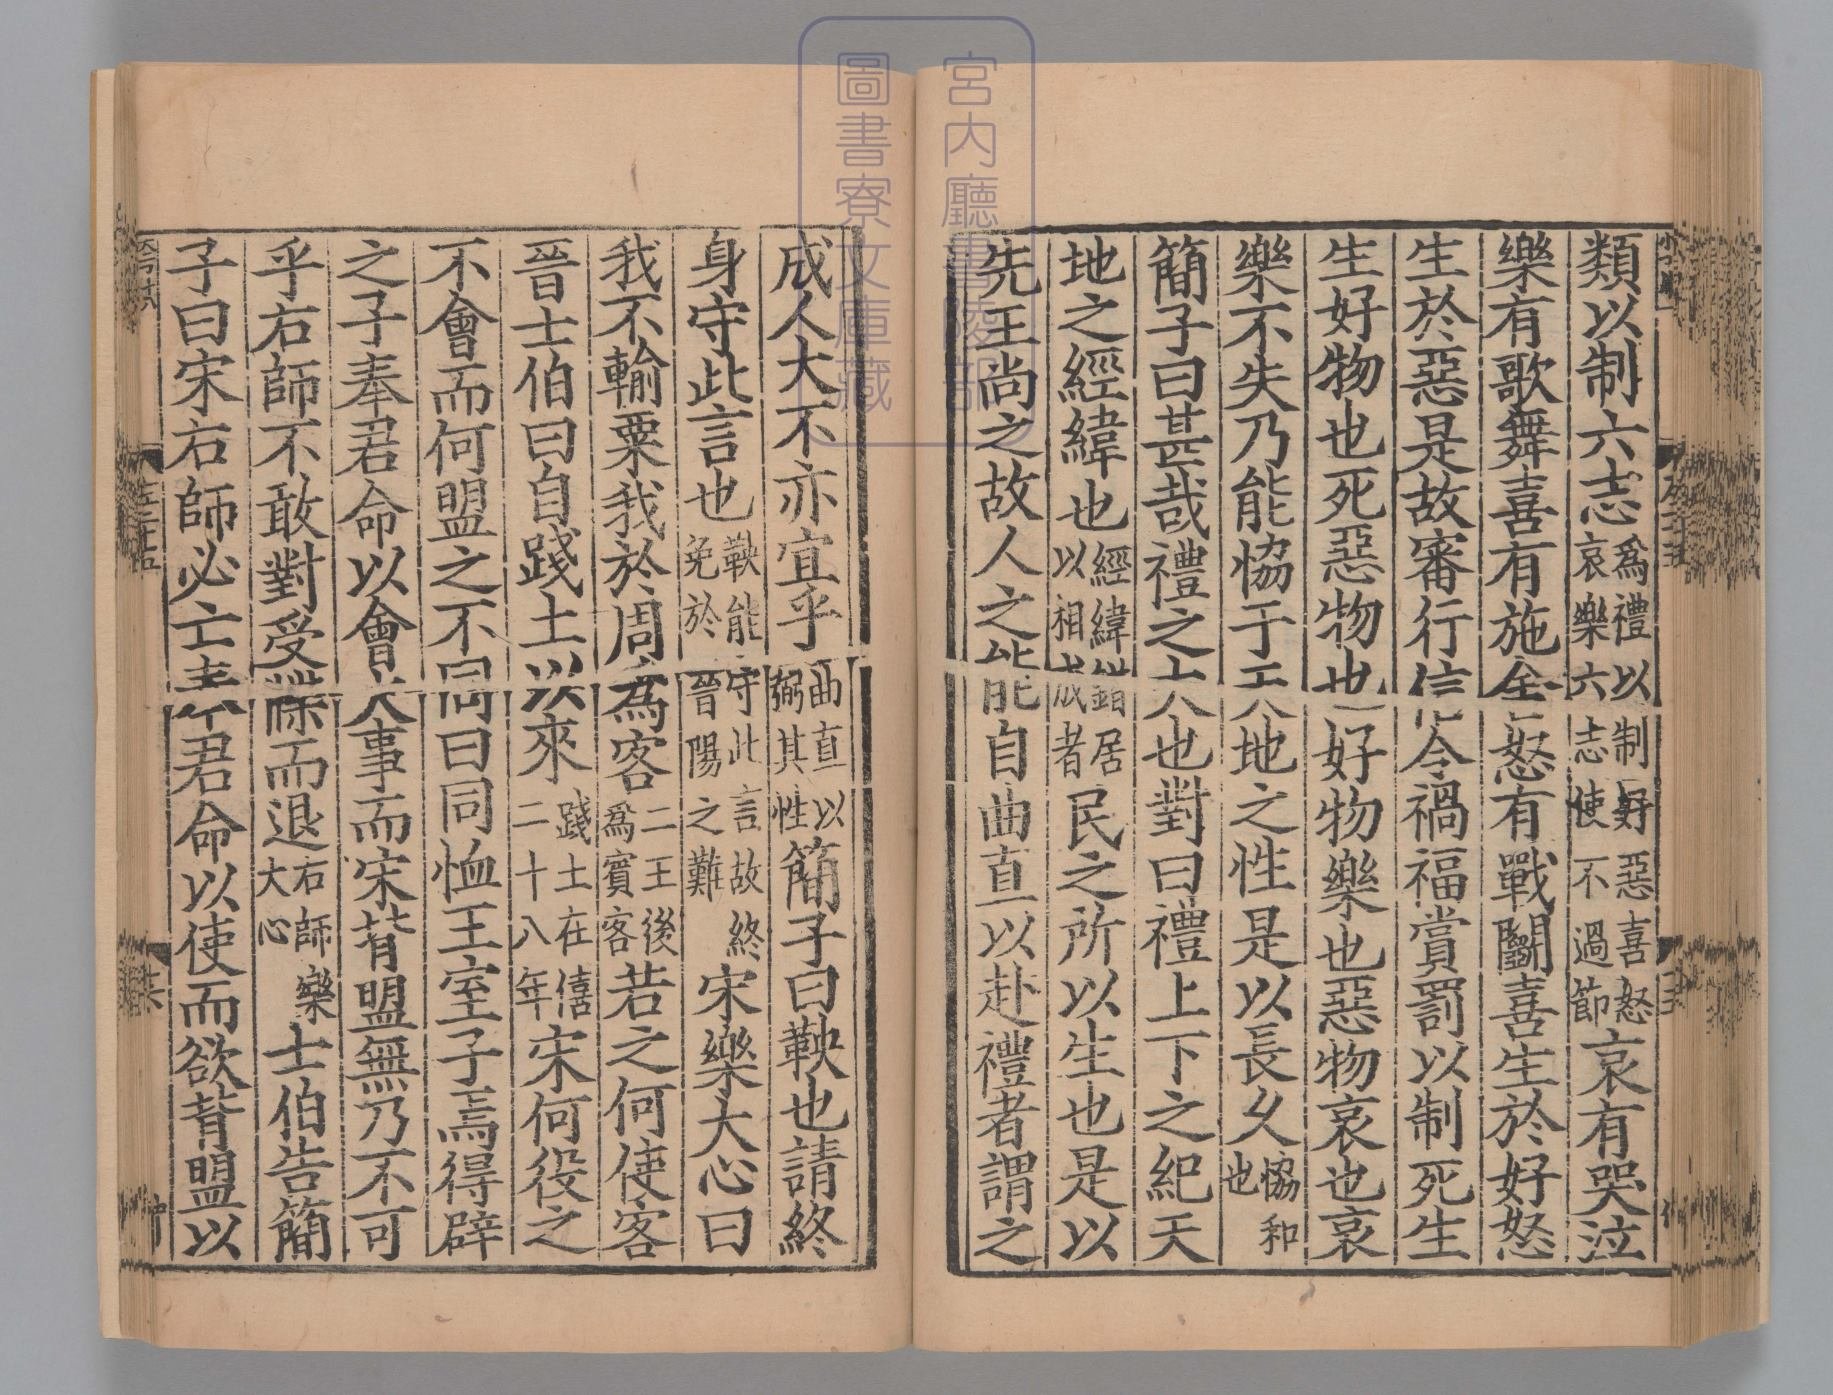 宮内廳書陵部
圖書寮文庫藏
類以制六志為禮以制好惡喜怒哀樂六志使不過節哀有哭泣
樂有歌舞喜有施舍怒有戰鬭喜生於好怒
生於惡是故審行信令禍福賞罰以制死生
生好物也死惡物也好物樂也惡物哀也哀
樂不失乃能恊于天地之性是以長久恊和也
簡子曰甚哉禮之大也對曰禮上下之紀天
地之經緯也經緯錯居以相成者民之所以生也是以
先王尚之故人之能自曲直以赴禮者謂之
成人大不亦宜乎曲直以弼其性簡子曰鞅也請終
身守此言也鞅能守此言故終免於晉陽之難宋樂大心曰
我不輸粟我於周為客二王後為賓客若之何使客
晉士伯曰自踐土以來踐土在僖二十八年宋何役之
不會而何盟之不同曰同恤王室子焉得辟
之子奉君命以會大事而宋背盟無乃不可
乎右師不敢對受牒而退右師樂大心士伯告簡
子曰宋右師必亡奉君命以使而欲背盟以